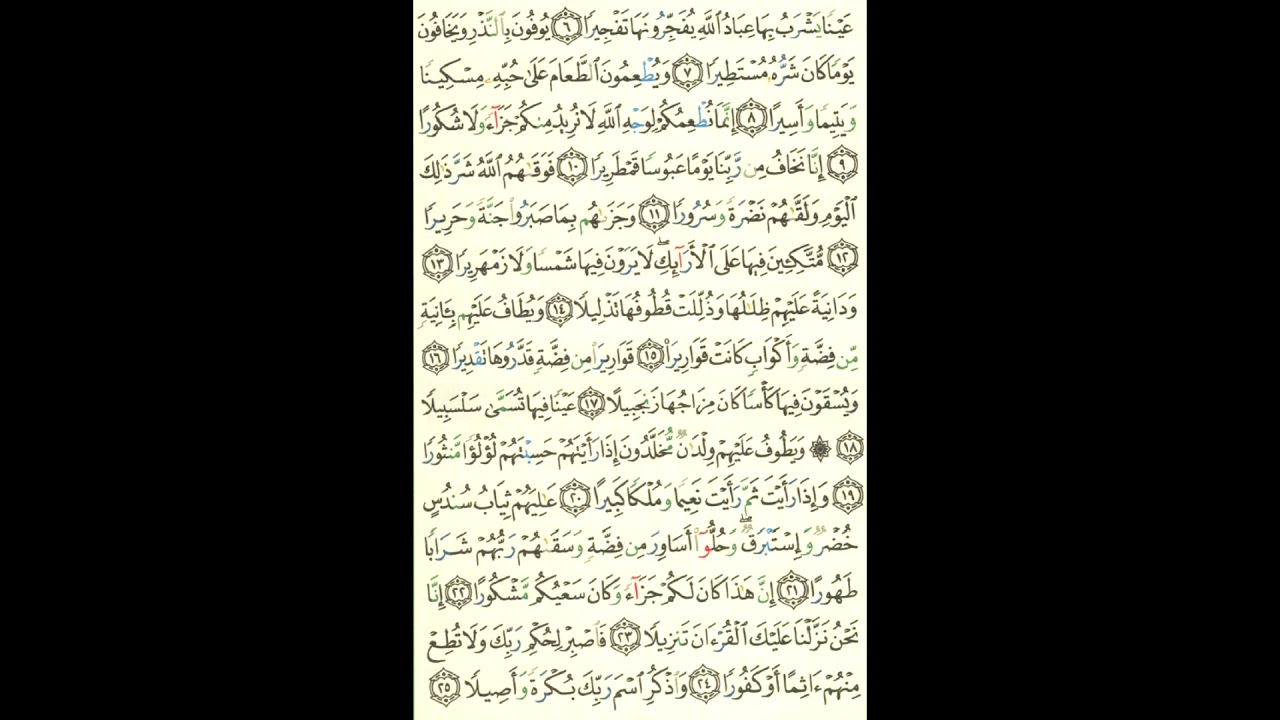 عَيْنٗا يَشْرَبُ بِهَا عِبَادُ ٱللَّهِ يُفَجِّرُونَهَا تَفْجِيرٗا ٦ يُوفُونَ بِٱلنَّذْرِ وَيَخَافُونَ
يَوْمٗا كَانَ شَرُّهُۥ مُسْتَطِيرٗا ٧ وَيُطْعِمُونَ ٱلطَّعَامَ عَلَىٰ حُبِّهِۦ مِسْكِينٗا
وَيَتِيمٗا وَأَسِيرًا ٨ إِنَّمَا نُطْعِمُكُمْ لِوَجْهِ ٱللَّهِ لَا نُرِيدُ مِنكُمْ جَزَآءٗ وَلَا شُكُورًا
٩ إِنَّا نَخَافُ مِن رَّبِّنَا يَوْمًا عَبُوسٗا قَمْطَرِيرٗا ١٠ فَوَقَىٰهُمُ ٱللَّهُ شَرَّ ذَٰلِكَ
ٱلْيَوْمِ وَلَقَّىٰهُمْ نَضْرَةٗ وَسُرُورٗا ١١ وَجَزَىٰهُم بِمَا صَبَرُوا۟ جَنَّةٗ وَحَرِيرٗا
١٢ مُّتَّكِـِٔينَ فِيهَا عَلَى ٱلْأَرَآئِكِۖ لَا يَرَوْنَ فِيهَا شَمْسٗا وَلَا زَمْهَرِيرٗا ١٣
وَدَانِيَةً عَلَيْهِمْ ظِلَٰلُهَا وَذُلِّلَتْ قُطُوفُهَا تَذْلِيلٗا ١٤ وَيُطَافُ عَلَيْهِم بِـَٔانِيَةٖ
مِّن فِضَّةٖ وَأَكْوَابٖ كَانَتْ قَوَارِيرَا۠ ١٥ قَوَارِيرَا۟ مِن فِضَّةٖ قَدَّرُوهَا تَقْدِيرٗا ١٦
وَيُسْقَوْنَ فِيهَا كَأْسٗا كَانَ مِزَاجُهَا زَنجَبِيلًا ١٧ عَيْنٗا فِيهَا تُسَمَّىٰ سَلْسَبِيلٗا
١٨ ۞ وَيَطُوفُ عَلَيْهِمْ وِلْدَٰنٞ مُّخَلَّدُونَ إِذَا رَأَيْتَهُمْ حَسِبْتَهُمْ لُؤْلُؤٗا مَّنثُورٗا
١٩ وَإِذَا رَأَيْتَ ثَمَّ رَأَيْتَ نَعِيمٗا وَمُلْكٗا كَبِيرًا ٢٠ عَٰلِيَهُمْ ثِيَابُ سُندُسٍ
خُضْرٞ وَإِسْتَبْرَقٞۖ وَحُلُّوٓا۟ أَسَاوِرَ مِن فِضَّةٖ وَسَقَىٰهُمْ رَبُّهُمْ شَرَابٗا
طَهُورًا ٢١ إِنَّ هَٰذَا كَانَ لَكُمْ جَزَآءٗ وَكَانَ سَعْيُكُم مَّشْكُورًا ٢٢ إِنَّا
نَحْنُ نَزَّلْنَا عَلَيْكَ ٱلْقُرْءَانَ تَنزِيلٗا ٢٣ فَٱصْبِرْ لِحُكْمِ رَبِّكَ وَلَا تُطِعْ
مِنْهُمْ ءَاثِمًا أَوْ كَفُورٗا ٢٤ وَٱذْكُرِ ٱسْمَ رَبِّكَ بُكْرَةٗ وَأَصِيلٗا ٢٥